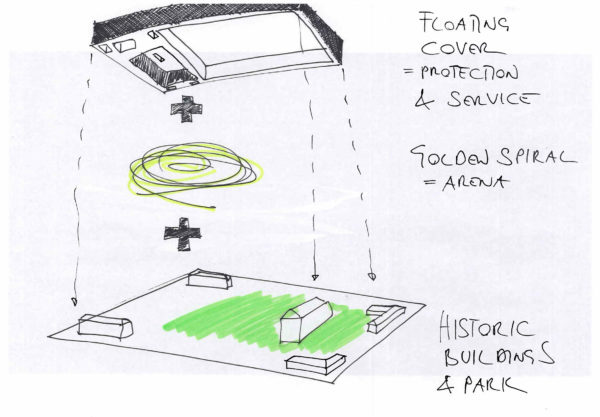 FLOATING
COVER
= PROTECTION
& SERVICE
GOLDEN SPIRAL
= ARENA
HISTORIC
BUILDINGS
& PARK